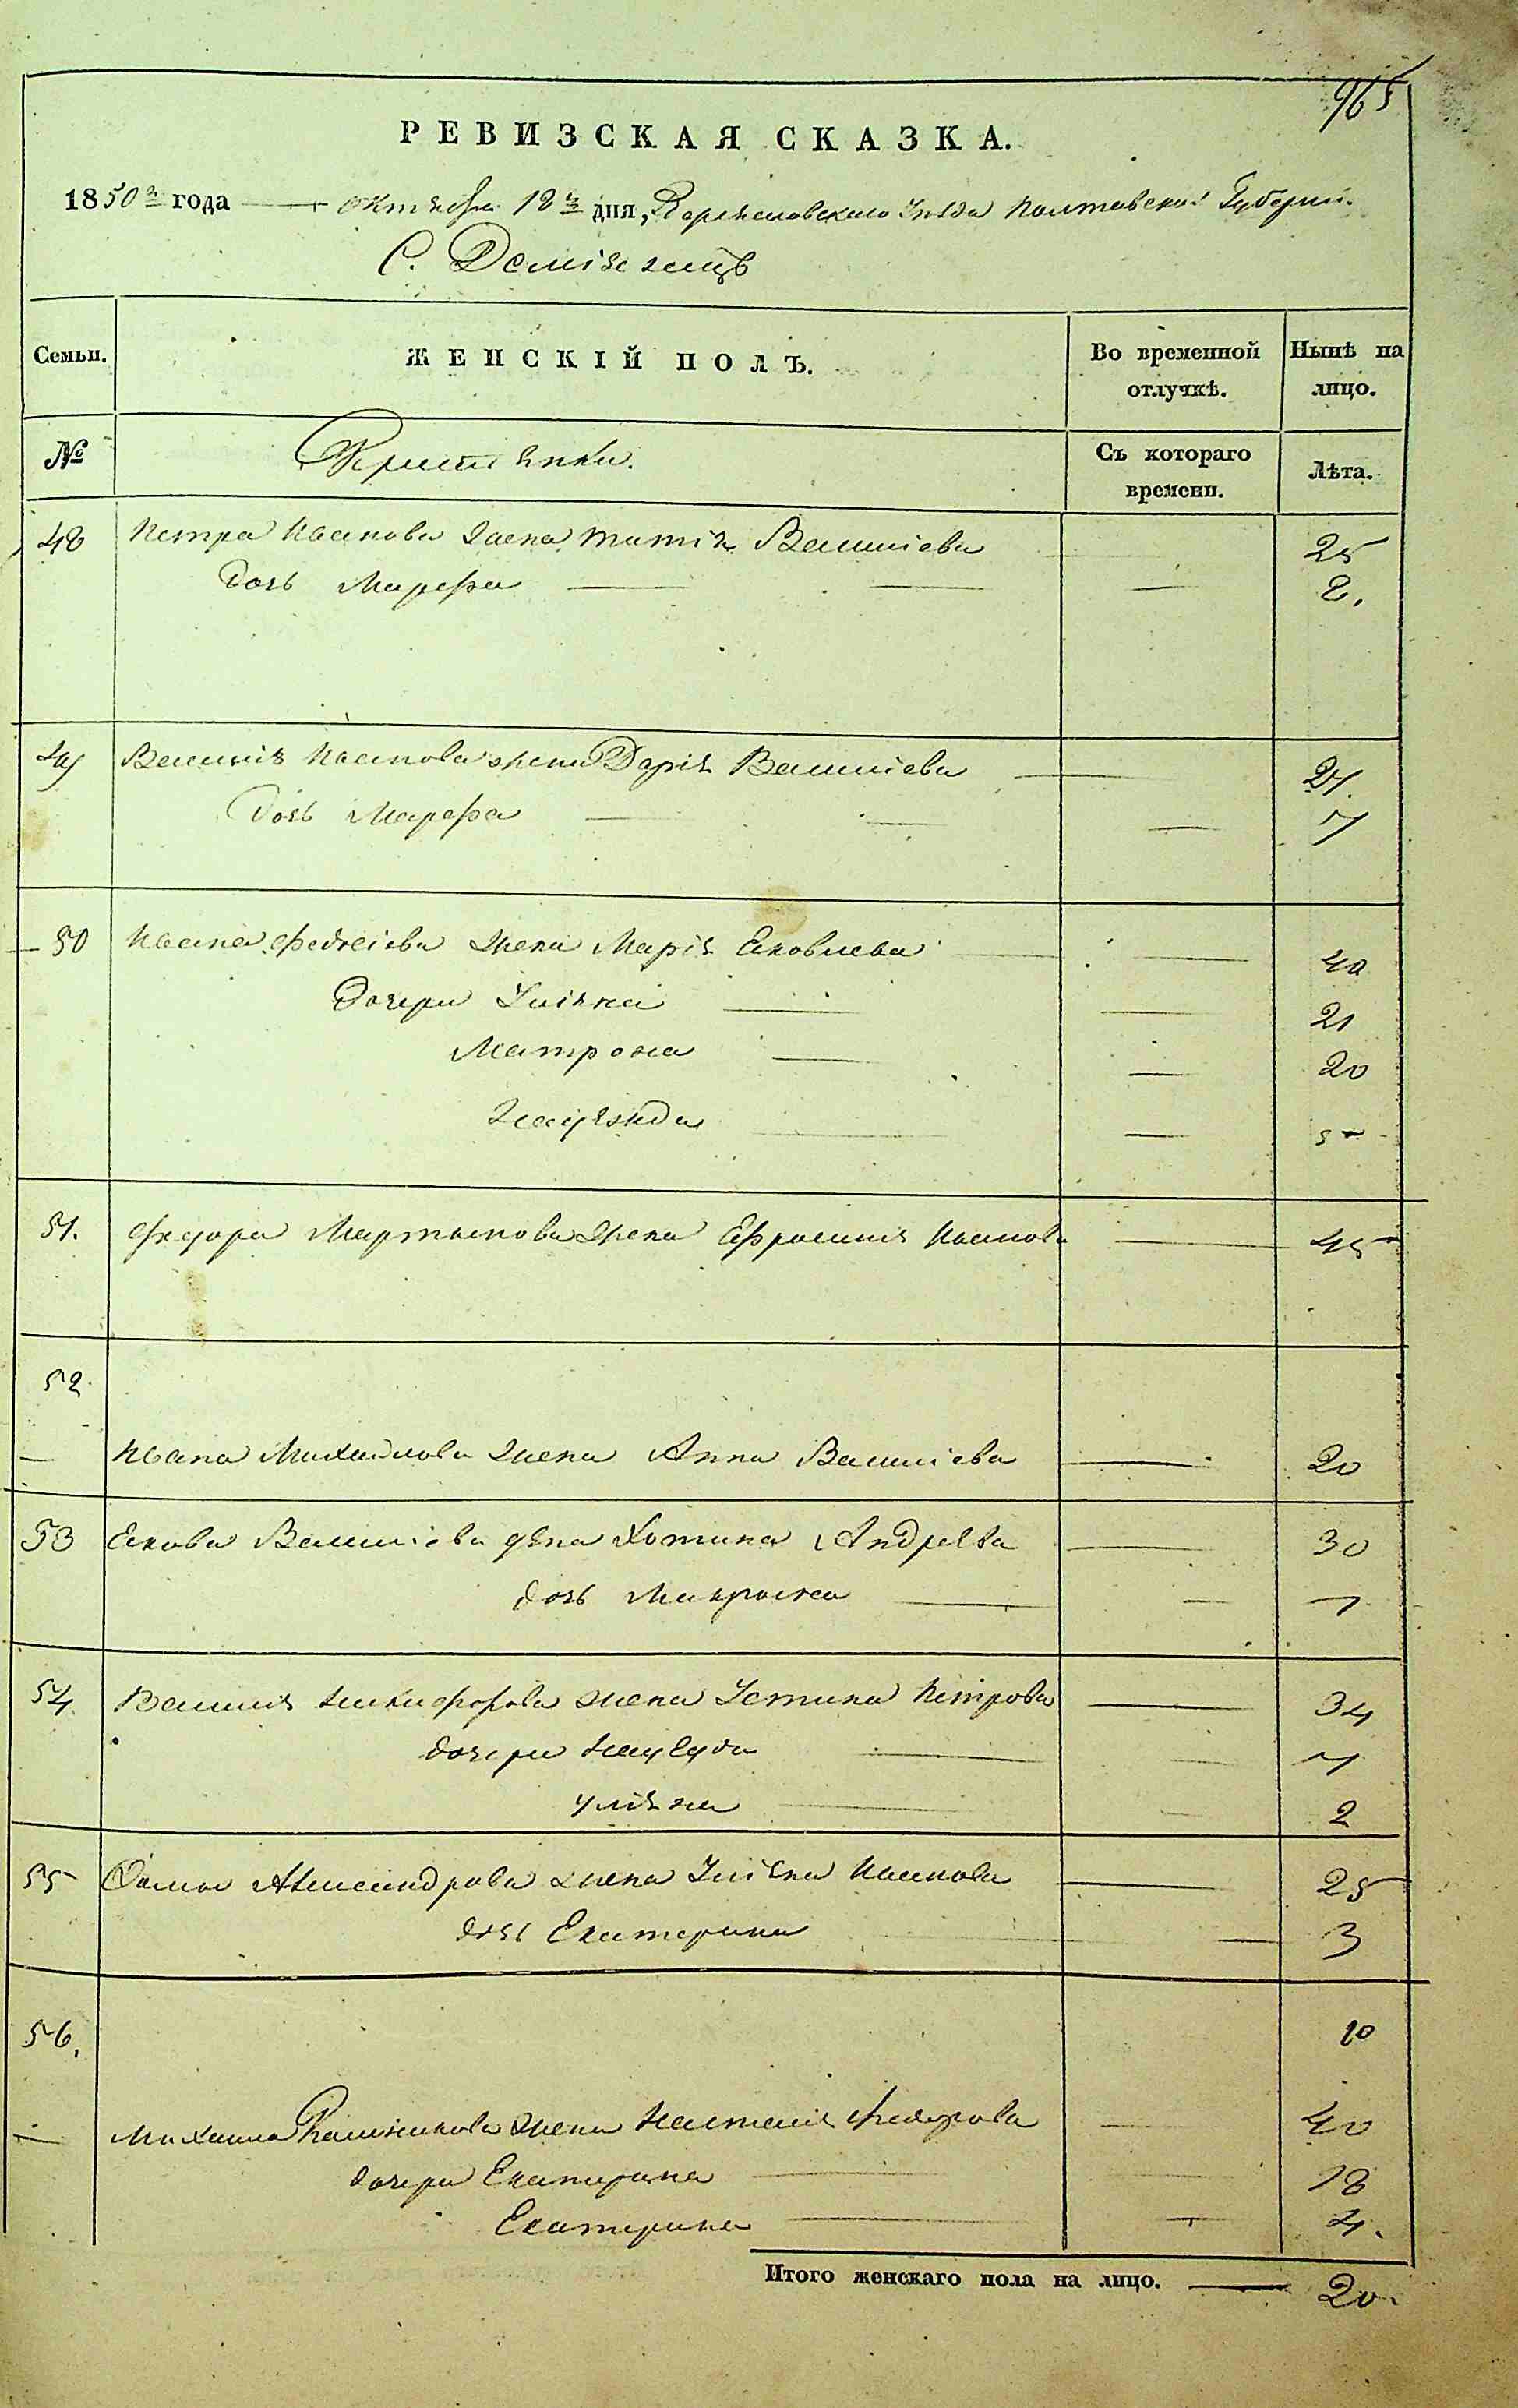 965
РЕВИЗСКАЯ СКАЗКА.
1850го года октября 18го дня, Переяславскаго Уезда Полтавской Губернии
С. Демянець
Семьи. ЖЕНСКІЙ ПОЛЪ. Во временной отлучкѣ. Нынѣ на лицо.
№ Крестьянки. Съ котораго времени. Лѣта.
48 Петра Иванова жена Татия Василиева 25
дочь Марефа 8.
49 Василия Иванова жена Дария Василиева 27.
Дочь Марефа 7
50 Ивана Федосиева жена Мария Яковлева 40
Дочери Улияна 21
Матрона 20
5
51. Федора Мартынова жена Ефросиния Иванова 45
52.
Ивана Михайлова жена Анна Василиева 20
53 Якова Василиева жена Хотина Андреева 30
дочь 1
54 Василия Никифорова жена Устина Петрова 34
дочери 7
Улияна 2
55 Фомы Александрова жена Улияна Иванова 25
дочь Екатерина 3
56. 10
Михаила жена Наталия Федорова 40
дочери Екатерина 18
Екатерина 4.
Итого женскаго пола на лицо. 20.